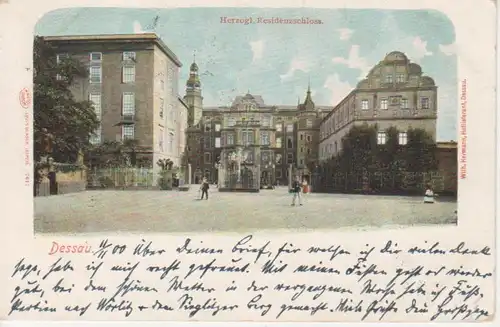 Herzogl. Residenzschloss.
Wilh. Hermann, Hoflieferant, Dessau.
Dessau. 4/11 00 Über Deinen Brief, für welchen ich Dir vielen Dank
sage, habe ich mich recht gefreut. Mit meinen Füßen geht es wieder
gut, bei dem schönen Wetter in der vergangenen Woche habe ich Fuß-
partien nach Wörlitz u. dem Berg gemacht. Viele Grüße dem